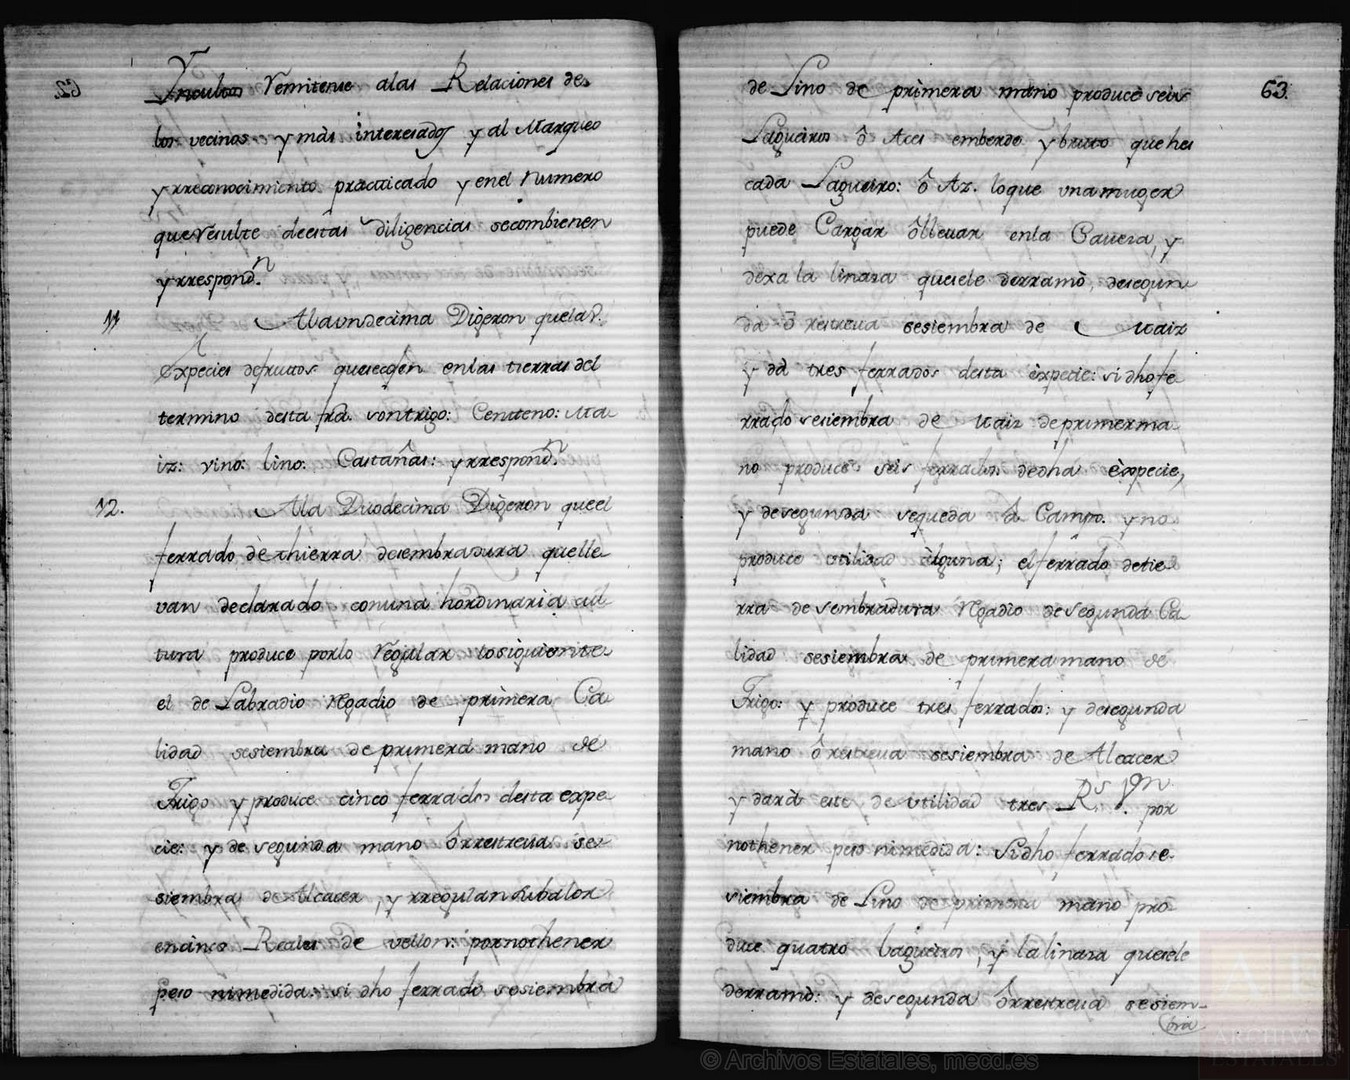 62
Ynculon Remitense alas Relaciones de
los vecinos y mas interesados y al Marqueo
y rreconocimiento practticado y en el Numero
que Resulte de estas diligencias se combienen
y rrespond.n
11
Ala undecima Digeron que las
Expecies de frutos que se cogen en las tierras del
termino desta fra son trigo: Centteno: Ma
iz: vino: lino: Castañas: y rrespond.n
12.
Ala Duodecima Digeron que el
ferrado dè thierra de sembradura que lle
van declarado con una hordinaria cul
tura produce por lo Regular lo siguientte
el de Labradio Rgadio de primera Ca
lidad se siembra de primera mano de
Trigo y produce cinco ferrados desta expe
cie: y de segunda mano ô rrestreva se
siembra de Alcacer, y rregulan su balor
en cinco Reales de vellon: por no thener
peso ni medida: si dho ferrado se siembra
63.
de Lino de primera mano produce seis
Lagueiros ô Aces em berde y bruto que hes
cada Lagueiro: ô Az. lo que una muger
puede Cargar ô llevar en la Cavera, y
dexa la linaza que se le derramò, de segun
da ô restreva se siembra de Maiz
y dà tres ferrados desta èxpecie: si dho fe
rrado se siembra de Maiz de primer ma
no produce seis ferrados de dha èxpecie,
y de segunda se queda à Campo. y no
produce utilidad àlguna; el ferrado de tie
rra de sembradura Rgadio de segunda Ca
lidad se siembra de primera mano de
Trigo: y produce tres ferrados: y de segunda
mano ô restreva se siembra de Alcacer
y darà este de utilidad tres R.s V.n por
no thener peso ni medida: Si dho ferrado se
siembra de Lino de primera mano pro
duce quatro lagueiros, y la linaza que se le
derramò: y de segunda ô rrestreva se siem-
bra
© Archivos Estatales, mecd.es
ARCHIVOS
ESTATALES